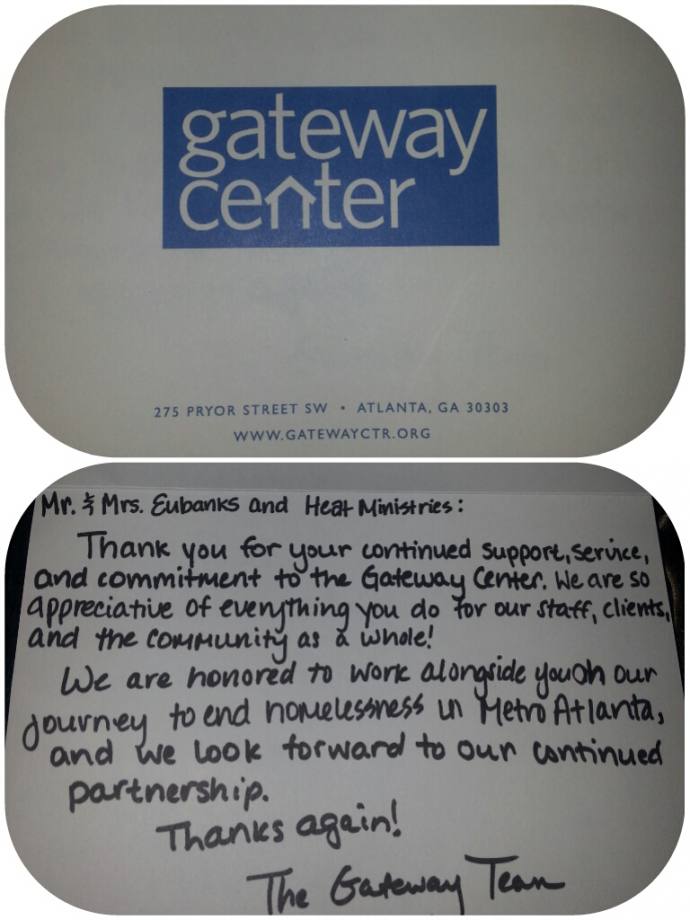 gateway
center
275 PRYOR STREET SW • ATLANTA, GA 30303
WWW.GATEWAYCTR.ORG
Mr. & Mrs. Eubanks and Heat Ministries:
Thank you for your continued support, service,
and commitment to the Gateway Center. We are so
appreciative of everything you do for our staff, clients,
and the community as a whole!
We are honored to work alongside you on our
journey to end homelessness in Metro Atlanta,
and we look forward to our continued
partnership.
Thanks again!
The Gateway Team